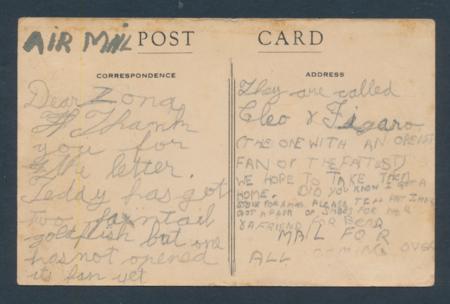 AIR MAIL POST CARD
CORRESPONDENCE
ADDRESS
Dear Zona
Thank
you for
the letter.
Teddy has got
too fantail
goldfish but one
has not opened
its fan yet
They are called
Cleo & Figaro
(THE ONE WITH AN
FAN OF THE FATTEST)
WE HOPE TO TAKE THEM
HOME. DID YOU KNOW I GOT A
PLEASE TELL PAT I HAVE
GOT A PAIR OF FOR ME
& A FRIEND FOR BEAR
MAIL FOR
ALL COMING OVER